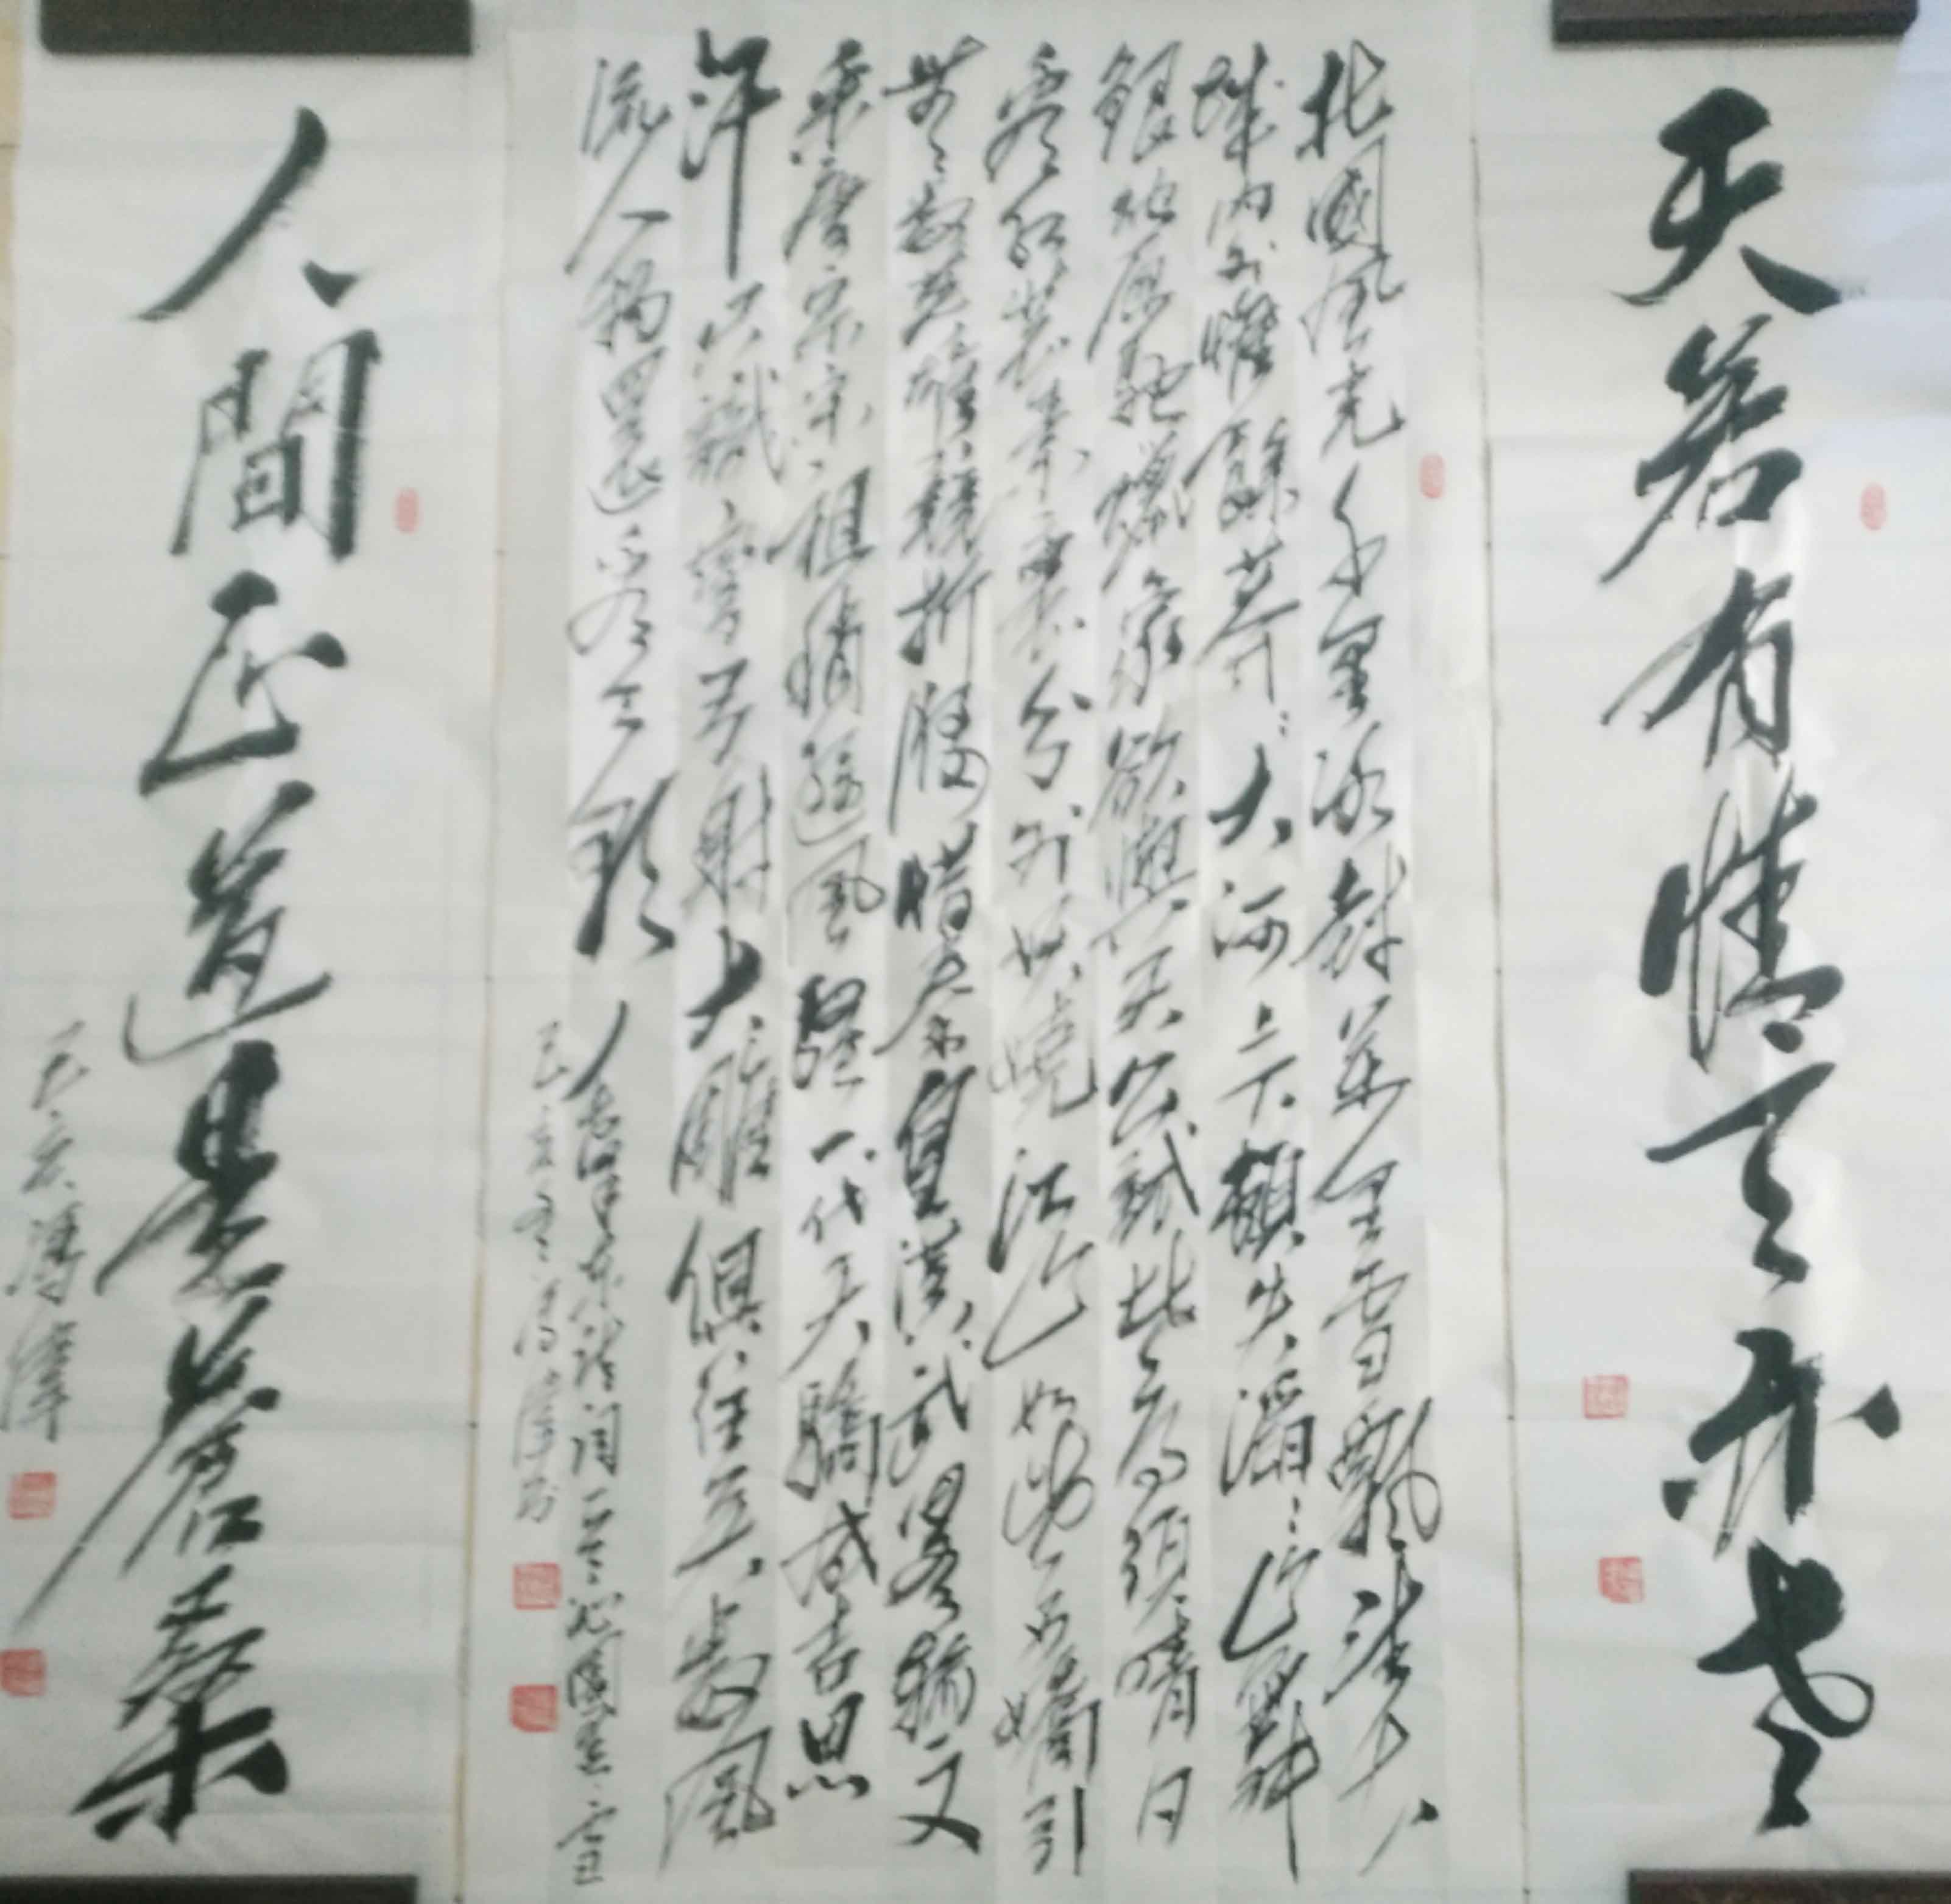 天若有情天亦老
北國風光千里冰封萬里雪飄望長
城內外惟餘莽莽大河上下頓失滔滔山舞
銀蛇原馳蠟象欲與天公試比高須晴日
看紅裝素裹分外妖嬈江山如此多嬌引
無數英雄競折腰惜秦皇漢武略輸文
采唐宗宋祖稍遜風騷一代天驕成吉思
汗只識彎弓射大雕俱往矣數風
流人物還看今朝 毛澤東 詩詞 沁園春雪
己亥冬
人間正道是滄桑
己亥